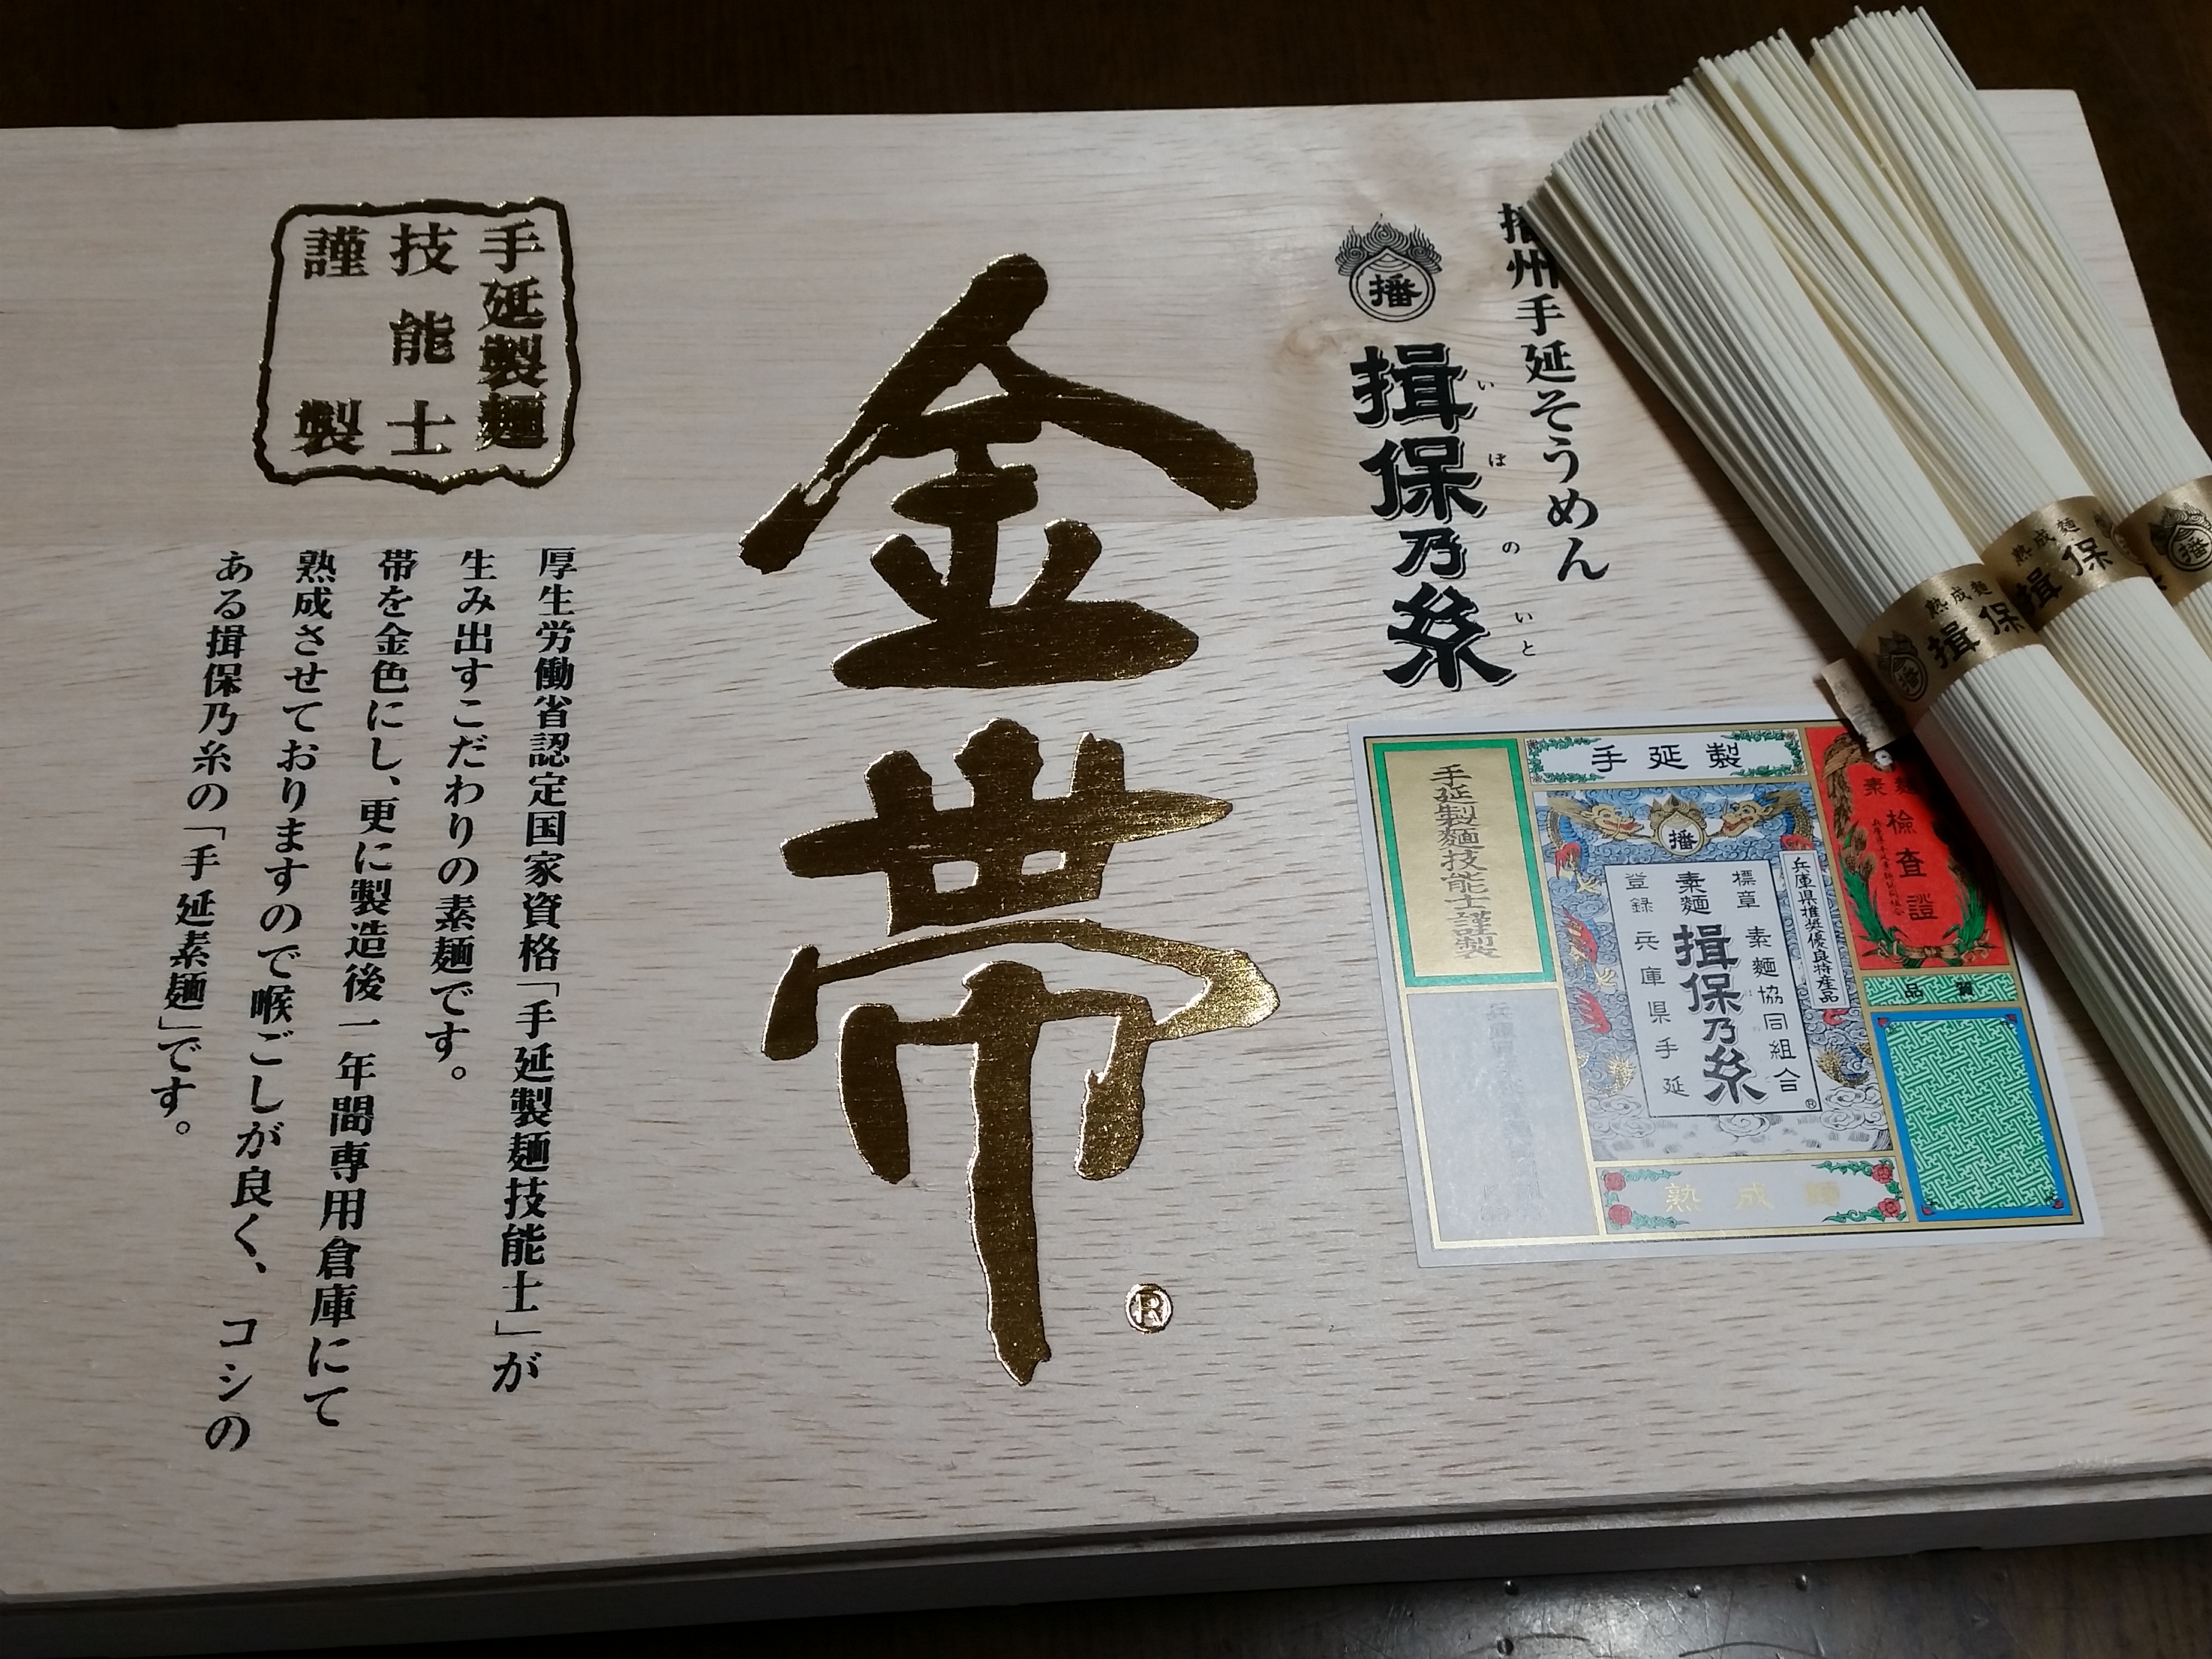 播州手延そうめん
播
揖保乃糸
いぼのいと
金帯
®
手延製麺
技能士
謹製
厚生労働省認定国家資格「手延製麺技能士」が
生み出すこだわりの素麺です。
帯を金色にし、更に製造後一年間専用倉庫にて
熟成させておりますので喉ごしが良く、コシの
ある揖保乃糸の「手延素麺」です。
熟成麺
揖保
播
熟成麺
揖保
播
手延製
手延製麺技能士謹製
播
兵庫県推奨優良特産品
標章
素麺協同組合
素麺
揖保乃糸
登録
兵庫県手延
®
検査證
品質
熟成麺